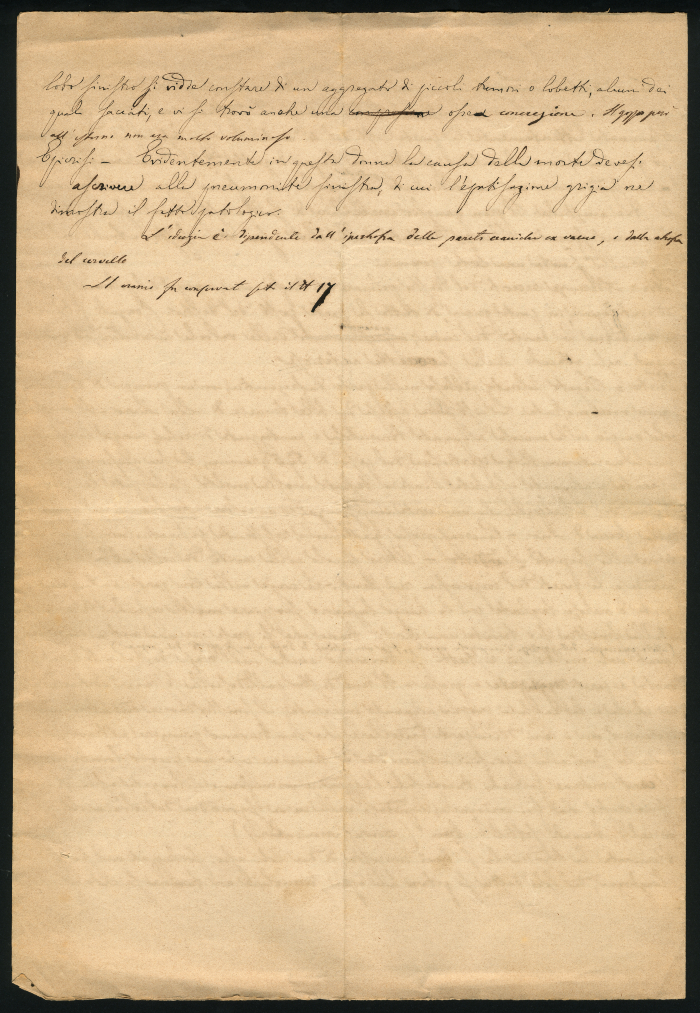 lobo sinistro si vidde constare di un aggregato di piccoli tumori o lobetti, alcuni dei
quali saccati, e vi si trovò anche una ossea concrezione. Il gozzo però
all'esterno non era molto voluminoso.
Epicrisi – Evidentemente in questa donna la causa della morte devesi
ascrivere alla pneumonite sinistra, di cui l'epatizzazione grigia ne
dimostra il fatto patologico.
L'idiozia è dipendente dall'ipertrofia delle pareti craniche ex vacuo, e dalla atrofia
del cervello
Il cranio fu conservat sotto il N 17